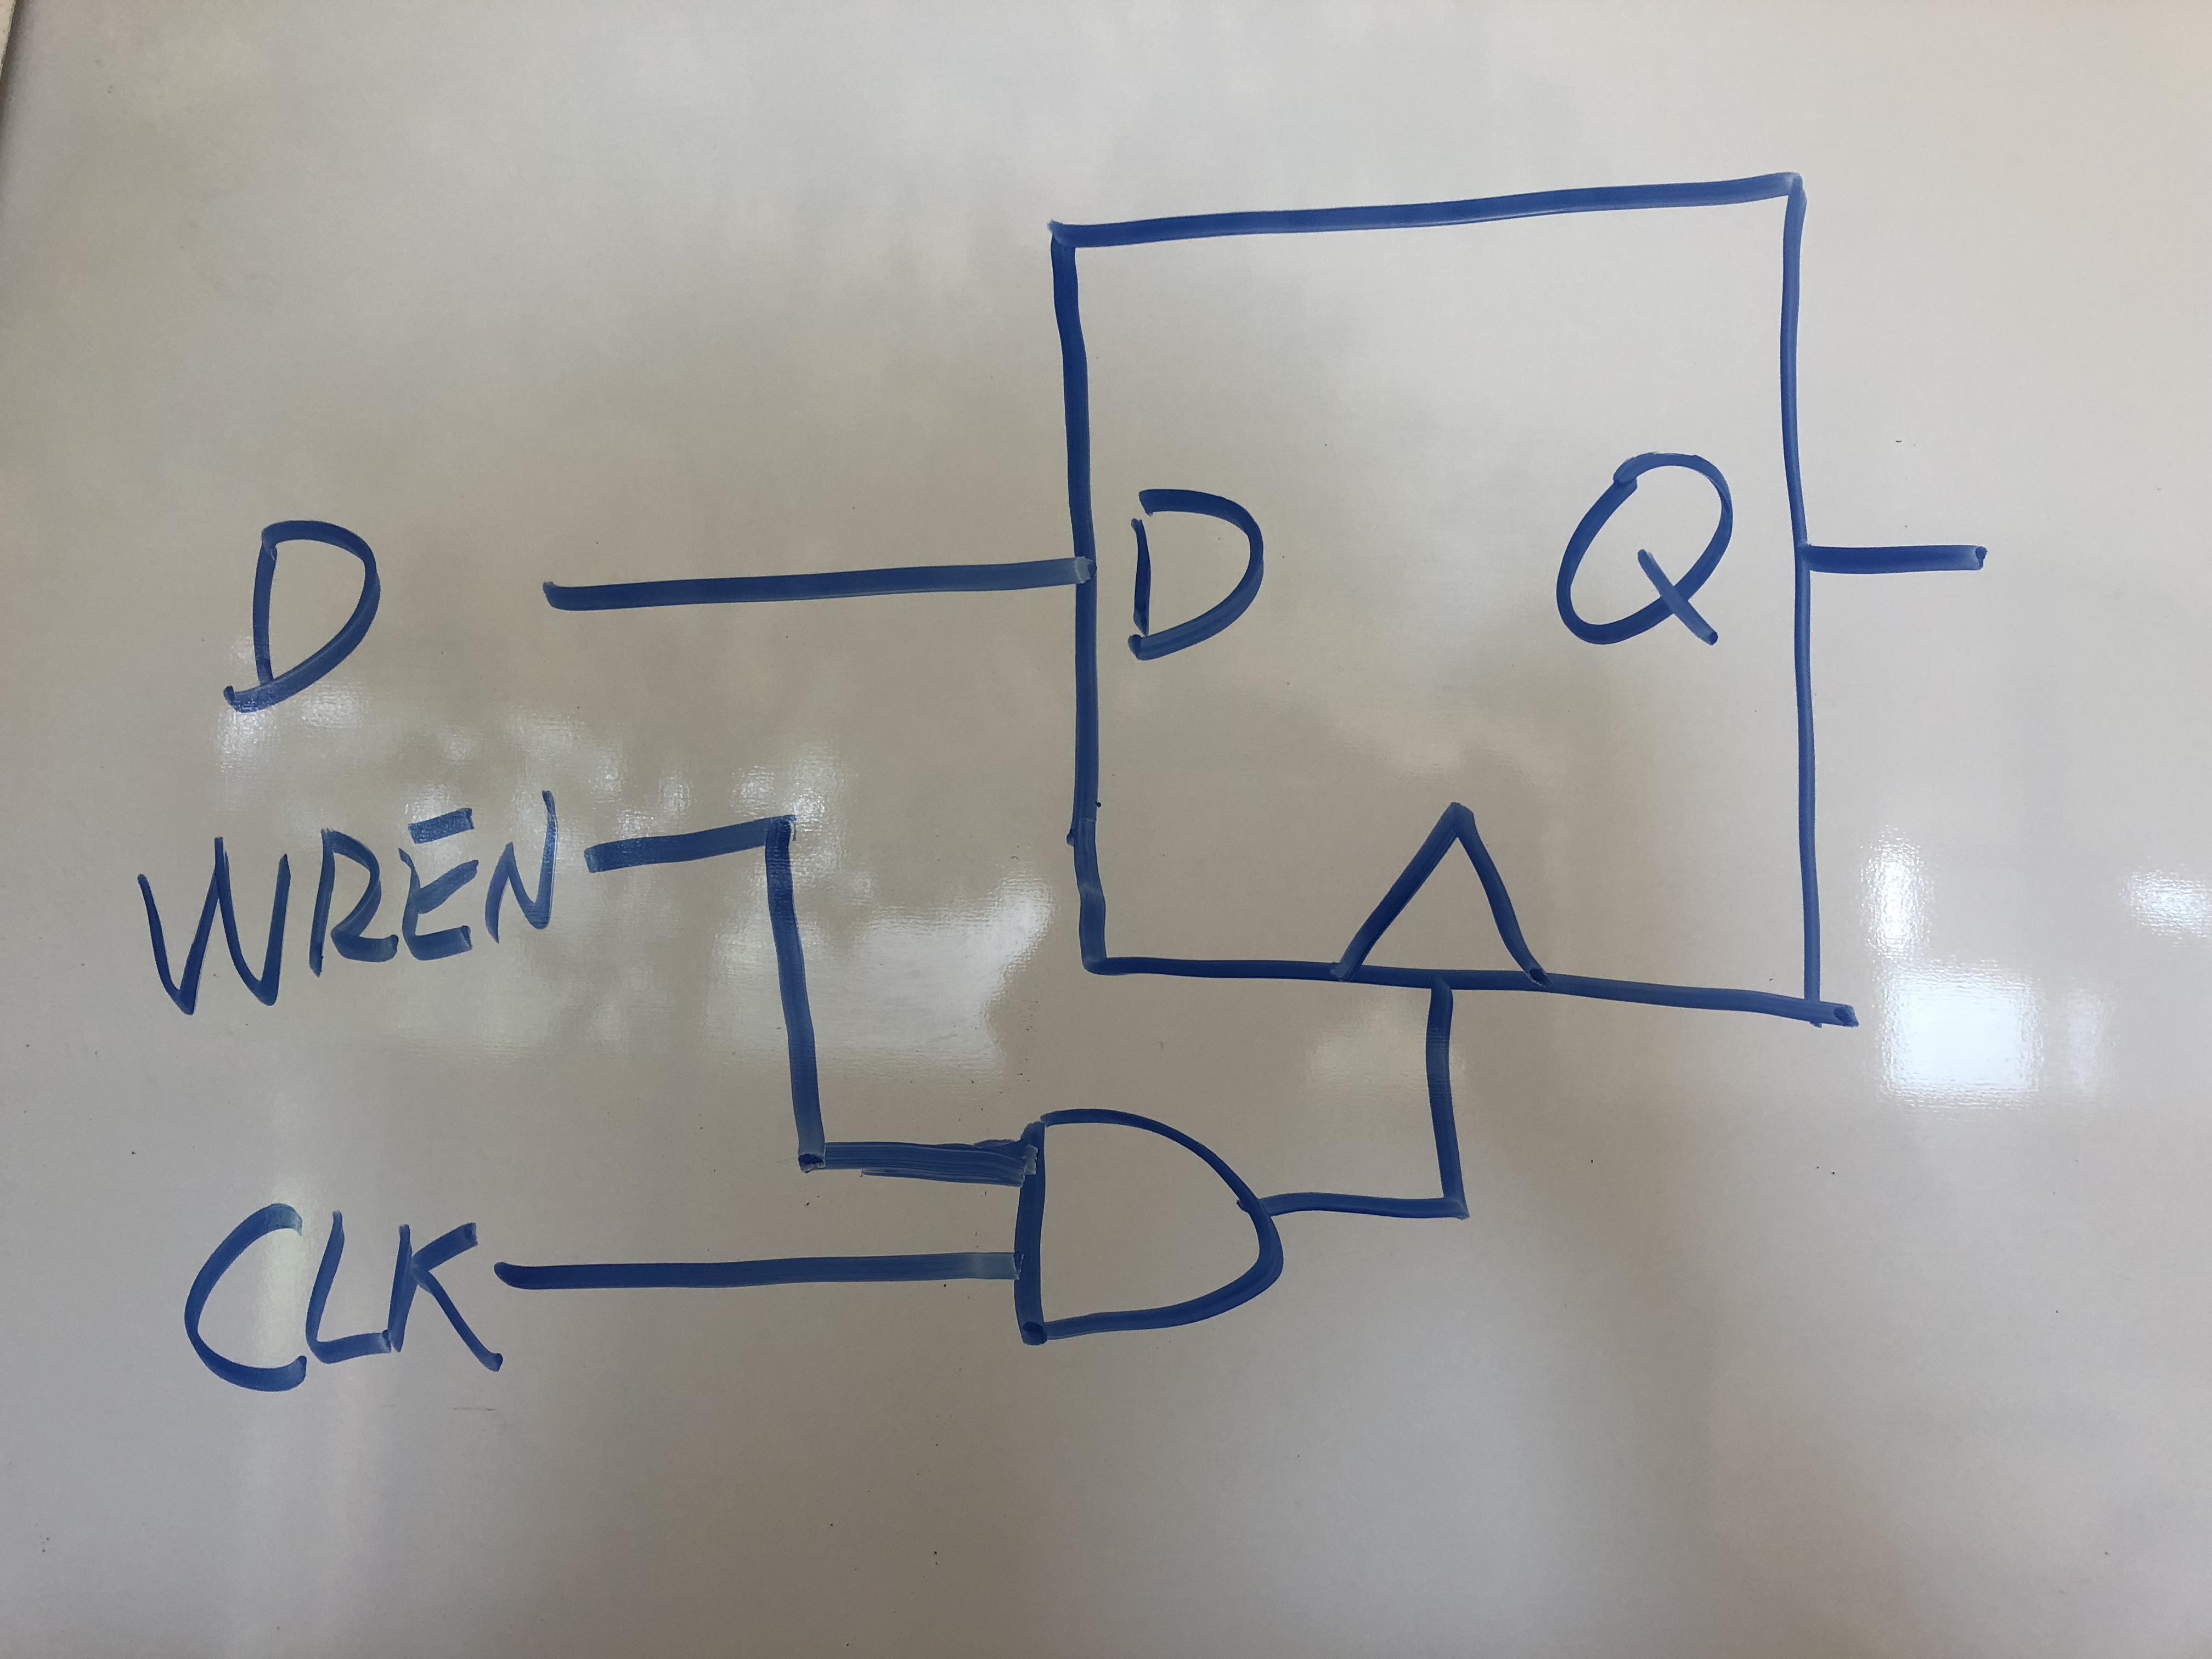 D D Q
WREN
CLK